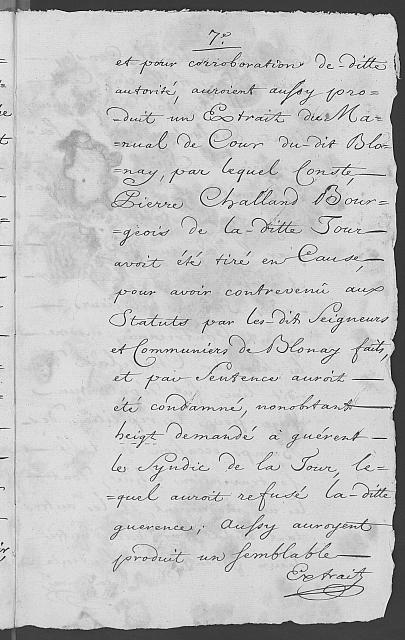 7.e
et pour corroboration de-ditte
autorité, auroient aussy pro=
=duit un Extrait du Ma=
=nual de Cour du-dit Blo=
=nay, par lequel Conste,
Pierre Challand Bour=
=geois de la-ditte Tour
avoit été tiré en Cause,
pour avoir contrevenû aux
Statuts par les-dit Seigneurs
et Communiers de Blonay faits,
et par Sentence auroit
été condamné, nonobtant
heigt demandé à guérent
le Syndic de la Tour, le=
=quel auroit refusé la-ditte
guerence; Aussy auroyent
produit un semblable
Extrait